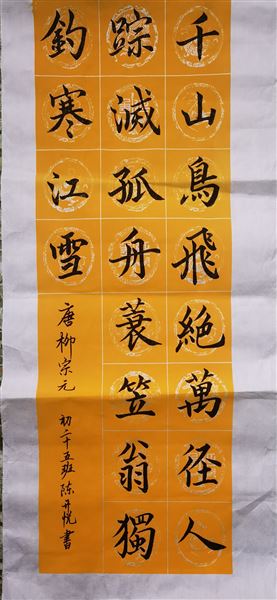 千山鳥飛絶萬径人
踪滅孤舟蓑笠翁獨
釣寒江雪
唐柳宗元
初二十五班陈丹悦書